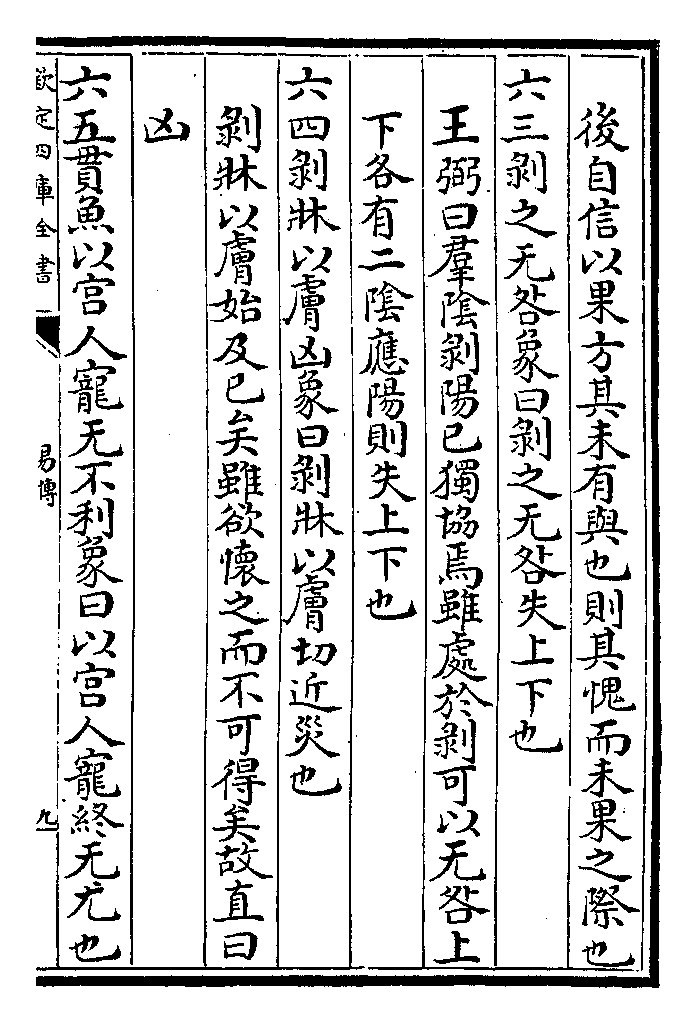 後自信以果方其未有與也則其愧而未果之際也
六三剝之无咎象曰剝之无咎失上下也
王弼曰羣陰剝陽已獨協焉雖處於剝可以无咎上
下各有二陰應陽則失上下也
六四剝牀以膚凶象曰剝牀以膚切近災也
剝牀以膚始及已矣雖欲懐之而不可得矣故直曰
凶
六五貫魚以宫人寵无不利象曰以宫人寵終无尤也
欽定四庫全書
易傳
九